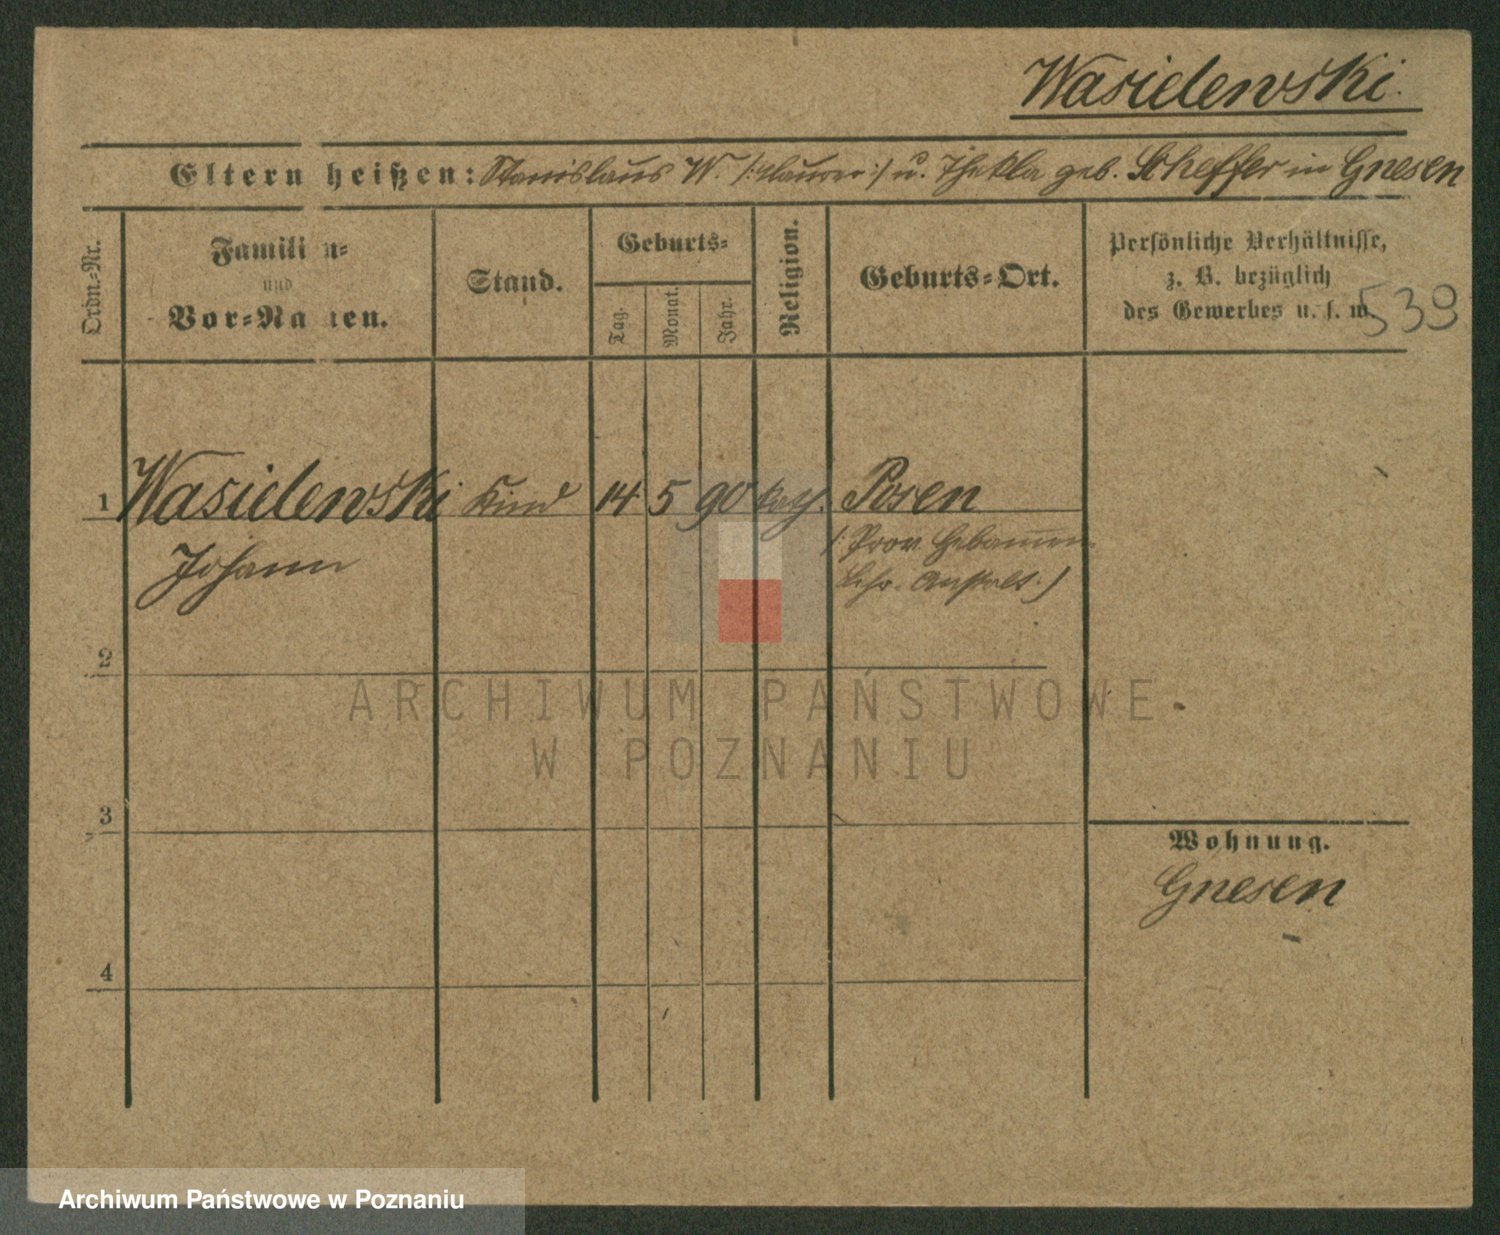 Wasielewski.
Eltern heißen: Stanislaus W. /: Maurer :/ u. Thekla geb. Scheffer in Gnesen
Ordn.-Nr.
Famili n-
und
Vor-Na en.
Stand.
Geburts-
Tag.
Monat.
Jahr.
Religion.
Geburts-Ort.
Persönliche Verhältnisse,
z. B. bezüglich
des Gewerbes u. s. w.
539
1 Wasielewski Kind 14. 5 90 kath. Posen
Johann
/: Prov Hebammen
Lehr. Anstalt :/
2
3
4
Wohnung.
Gnesen
ARCHIWUM PAŃSTWOWE
W POZNANIU
Archiwum Państwowe w Poznaniu